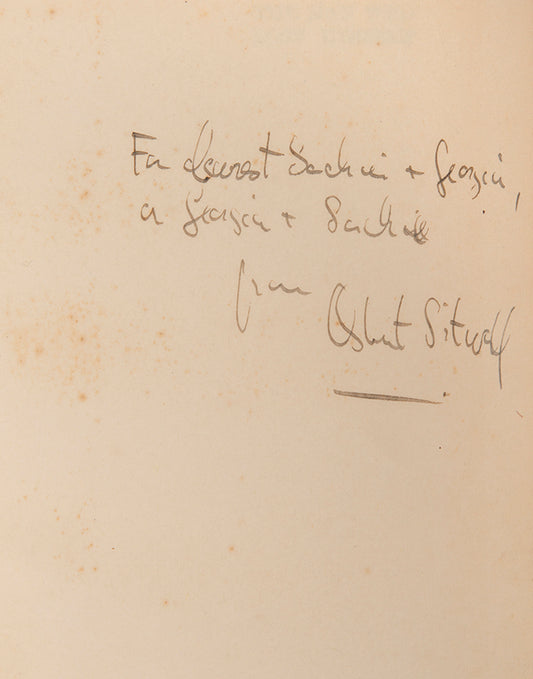 For dearest Sachie + Georgia,
or Georgia + Sachie
from
Osbert Sitwell